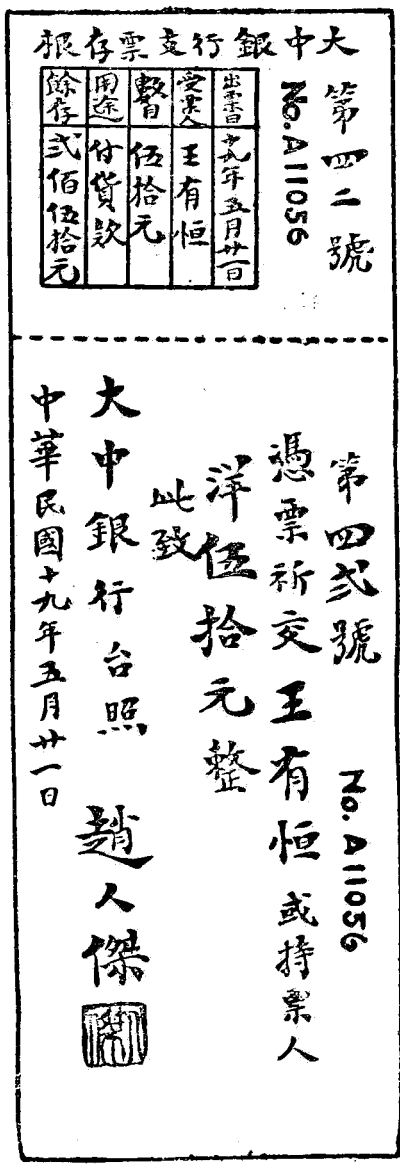 大中銀行支票存根
第四二號
No.A11056
出票日 十九年五月廿一日
受票人 王有恒
數目 伍拾元
用途 付貨款
餘存 弍佰伍拾元
第四弍號
No.A11056
憑票祈交王有恒或持票人
洋伍拾元整
此致
大中銀行台照 趙人傑
中華民國十九年五月廿一日